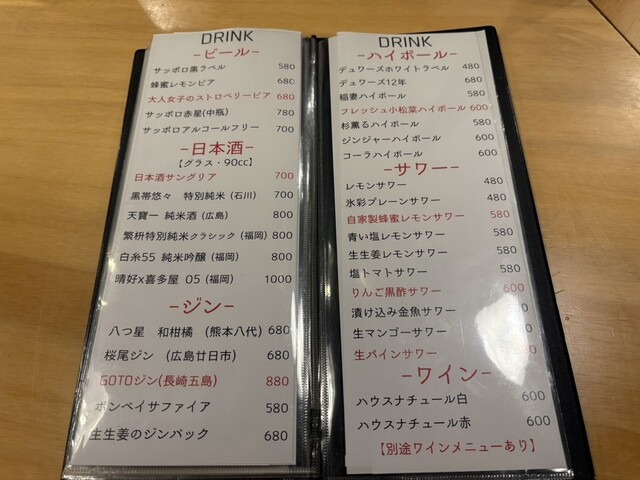 DRINK
-ビール-
サッポロ黒ラベル 580
蜂蜜レモンビア 680
大人女子のストロベリービア 680
サッポロ赤星(中瓶) 780
サッポロアルコールフリー 700
-日本酒-
【グラス・90cc】
日本酒サングリア 700
黒帯悠々 特別純米 (石川) 700
天寶一 純米酒 (広島) 800
繁枡特別純米クラシック (福岡) 800
白糸55 純米吟醸 (福岡) 800
晴好x喜多屋 05 (福岡) 1000
-ジン-
八つ星 和柑橘 (熊本八代) 680
桜尾ジン (広島廿日市) 680
GOTOジン(長崎五島) 880
ボンベイサファイア 580
生生姜のジンバック 680
DRINK
-ハイボール-
デュワーズホワイトラベル 480
デュワーズ12年 680
稲妻ハイボール 580
フレッシュ小松菜ハイボール 600
杉薫るハイボール 580
ジンジャーハイボール 600
コーラハイボール 600
-サワー-
レモンサワー 480
氷彩プレーンサワー 480
自家製蜂蜜レモンサワー 580
青い塩レモンサワー 580
生生姜レモンサワー 580
塩トマトサワー 580
りんご黒酢サワー 600
漬け込み金魚サワー
生マンゴーサワー
生パインサワー
-ワイン-
ハウスナチュール白 600
ハウスナチュール赤 600
【別途ワインメニューあり】